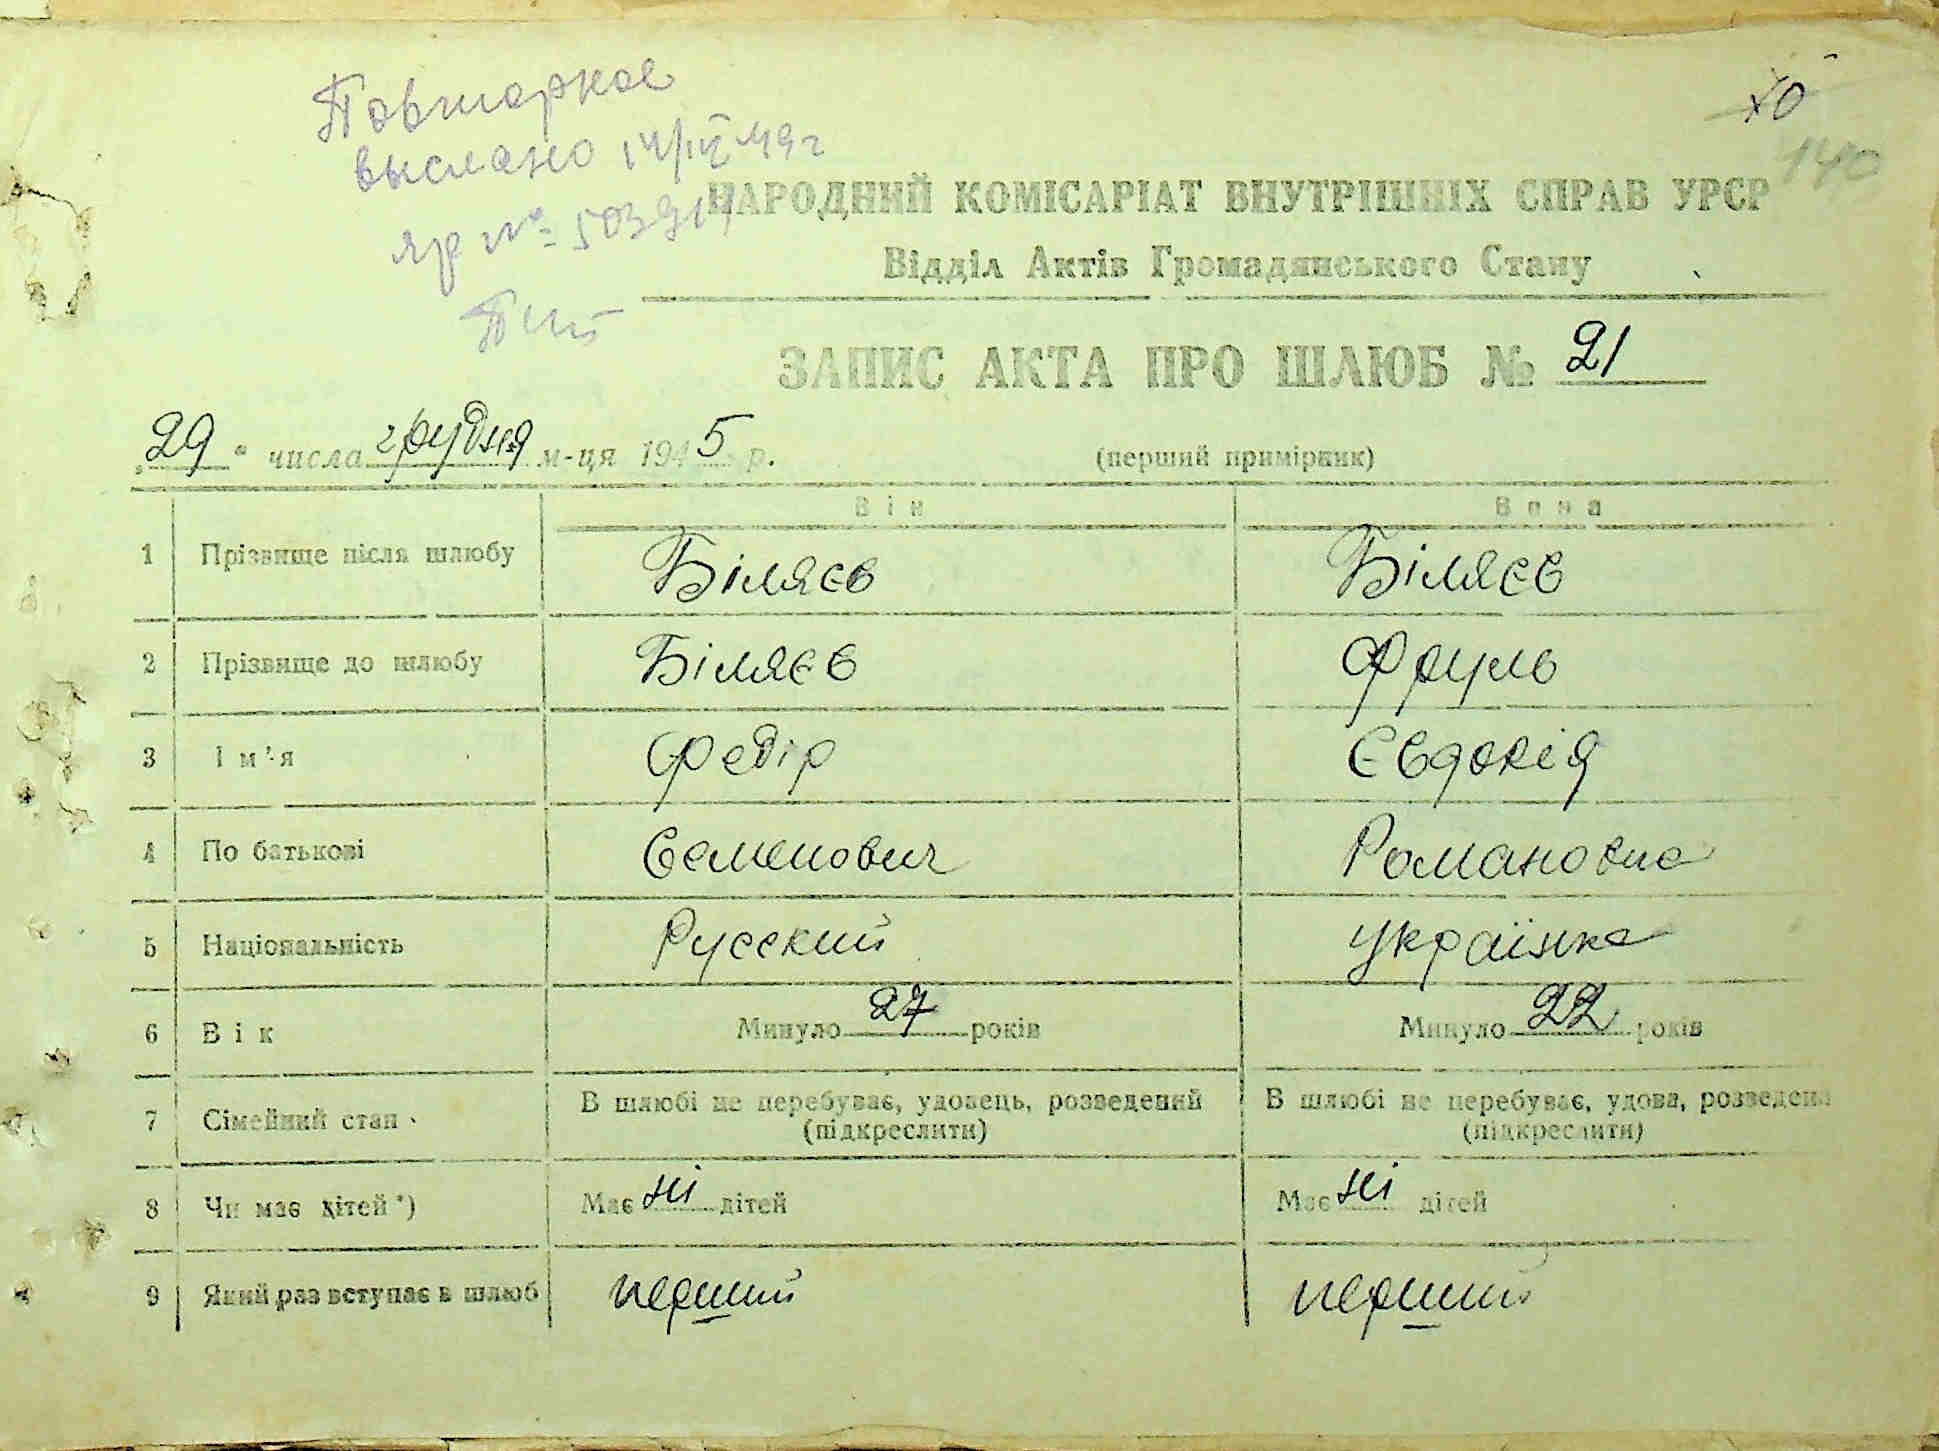 Повторное
выслано 14/IV 49 г
яр № 503911
70
140
НАРОДНИЙ КОМІСАРІАТ ВНУТРІШНІХ СПРАВ УРСР
Відділ Актів Громадянського Стану
ЗАПИС АКТА ПРО ШЛЮБ № 21
„29" числа грудня м-ця 1945 р. (перший примірник)
Він Вона
1 Прізвище після шлюбу Біляєв Біляєв
2 Прізвище до шлюбу Біляєв Фруль
3 Ім'я Федір Євдокія
4 По батькові Семенович Романовна
5 Національність Русский Українка
6 Вік Минуло 27 років Минуло 22 років
7 Сімейний стан В шлюбі не перебуває, удовець, розведений (підкреслити) В шлюбі не перебуває, удова, розведена (підкреслити)
8 Чи має дітей*) Має ні дітей Має ні дітей
9 Який раз вступає в шлюб перший перший